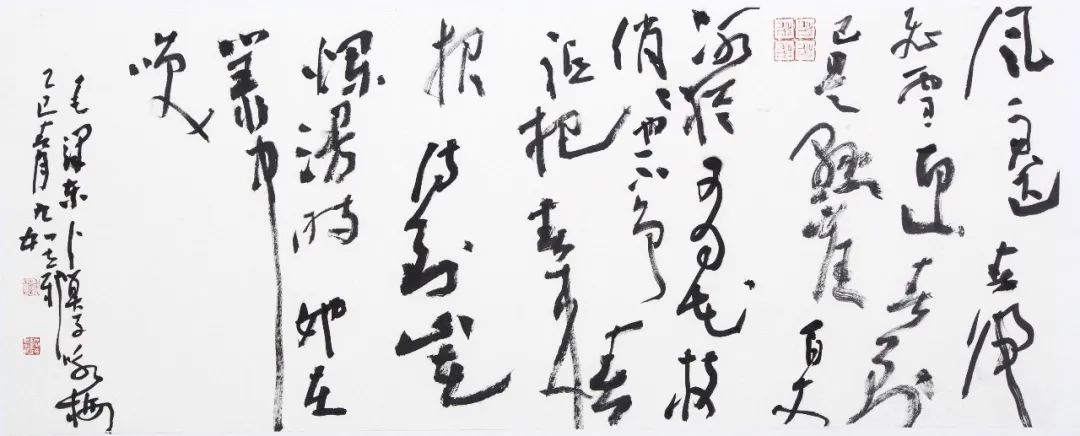 风雨送春归
飞雪迎春到
已是悬崖百丈
冰犹有花枝
俏俏也不争春
只把春来
报待到山花
烂漫时她在
丛中
咲
毛泽东卜算子咏梅
乙巳春月九如